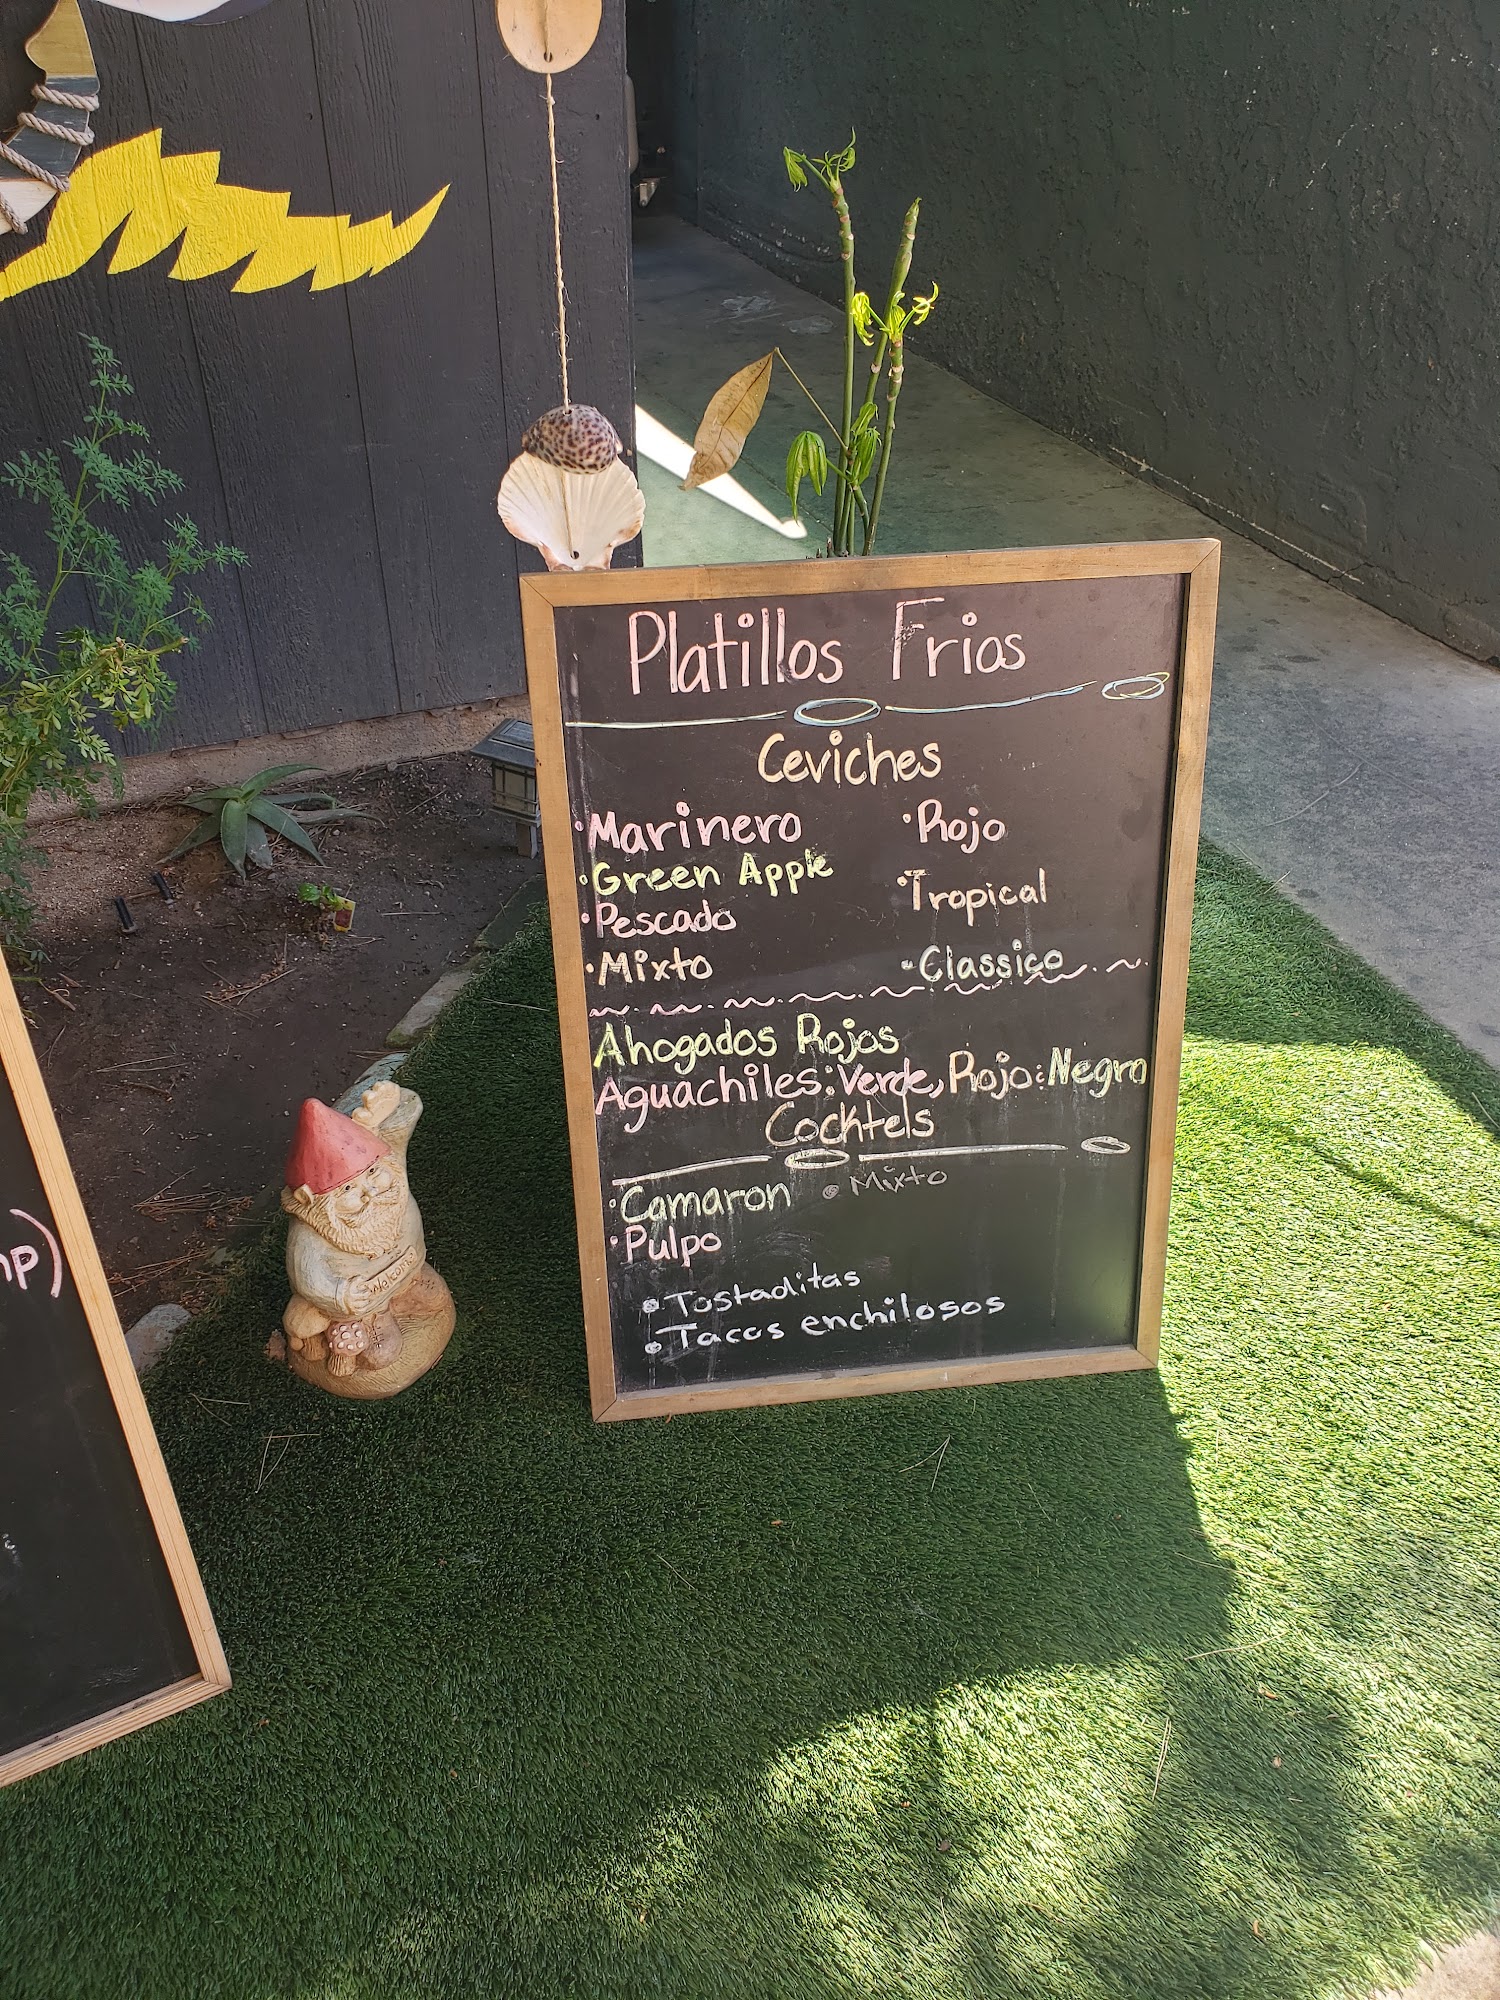 Platillos Frios
Ceviches
•Marinero •Rojo
•Green Apple
•Tropical
•Pescado
•Mixto •Classico
Ahogados Rojos
Aguachiles:Verde,Rojo:Negro
Cocktels
•Camaron •Mixto
•Pulpo
•Tostaditas
•Tacos enchilosos
Welcome